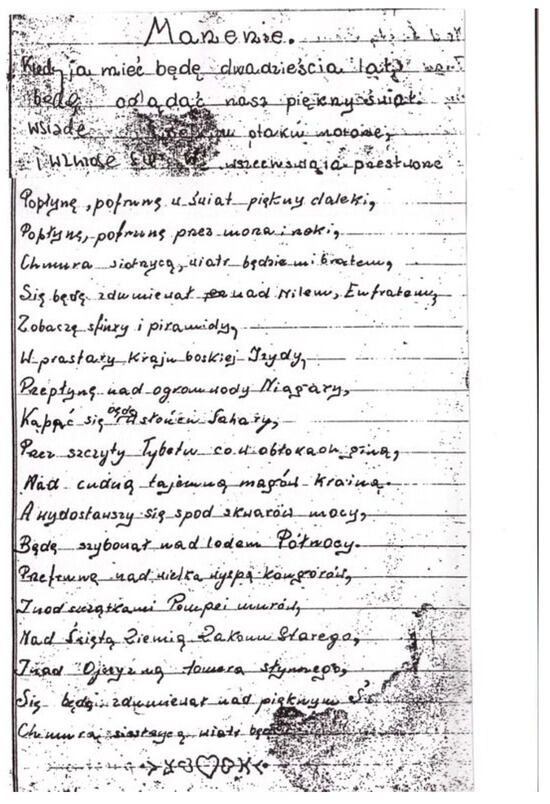 Marzenie.
Kiedy ja mieć będę dwadzieścia lat,
będę oglądać nasz piękny świat.
wsiądę ptaku motorze,
i wzniosę się w wszechświata przestworze
Popłynę, pofrunę w świat piękny daleki,
Popłynę, pofrunę przez morza i rzeki,
Chmura siostrzycą, wiatr będzie mi bratem,
Się będę zdumiewał nad Nilem, Eufratem,
Zobaczę sfinxy i piramidy,
W prastary kraju boskiej Izydy,
Przepłynę nad ogrom wody Niagary,
Kąpać się będę w słońcu Sahary,
Przez szczyty Tybetu co w obłokach giną,
Nad cudną tajemną magów krainą.
A wydostawszy się spod skwarów mocy,
Będę szybował nad lodem Północy.
Przefrunę nad wielką wyspą kangurów,
I nad szczątkami Pompei murów,
Nad Świętą Ziemią Zakonu Starego,
I nad Ojczyzną Homera słynnego,
Się będę zdumiewał nad pięknym
Chmura siostrzycą wiatr